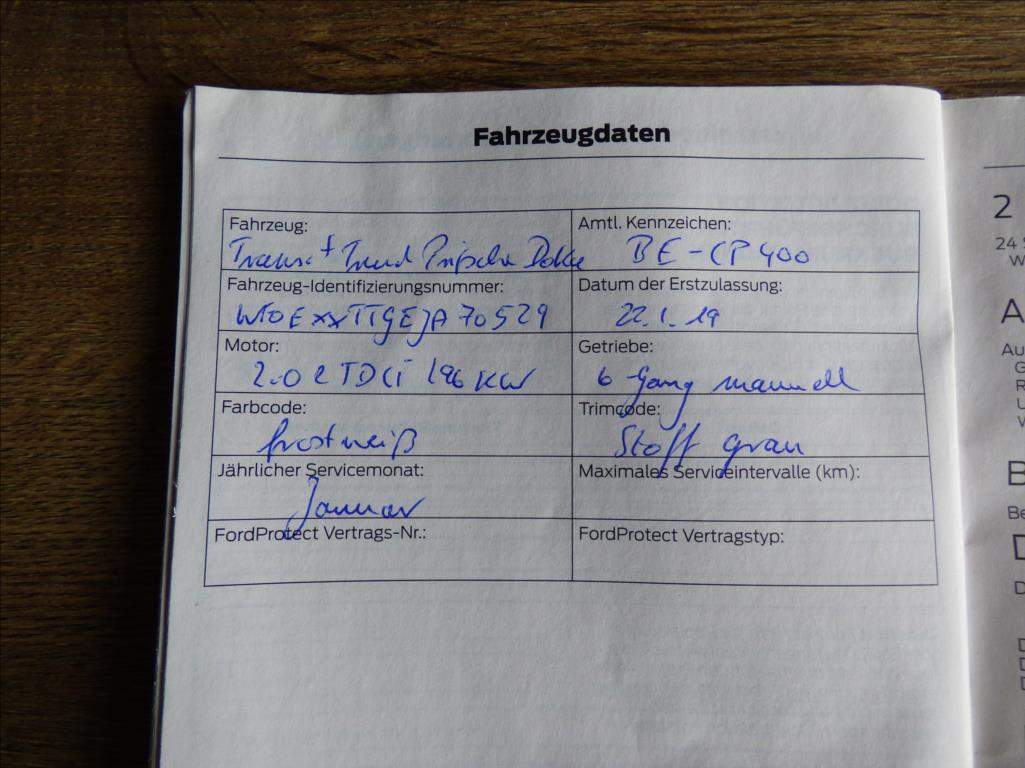 Fahrzeugdaten
Fahrzeug:
Transit Trend Pritsche Doka
Amtl. Kennzeichen:
BE-CP 400
Fahrzeug-Identifizierungsnummer:
WF0EXXTTGEJA70529
Datum der Erstzulassung:
22.1.19
Motor:
2.0 l TDCi 96 KW
Getriebe:
6-Gang manuell
Farbcode:
frostweiß
Trimcode:
Stoff grau
Jährlicher Servicemonat:
Januar
Maximales Serviceintervalle (km):
FordProtect Vertrags-Nr.:
FordProtect Vertragstyp:
2
24
A
Au
B
Be
D